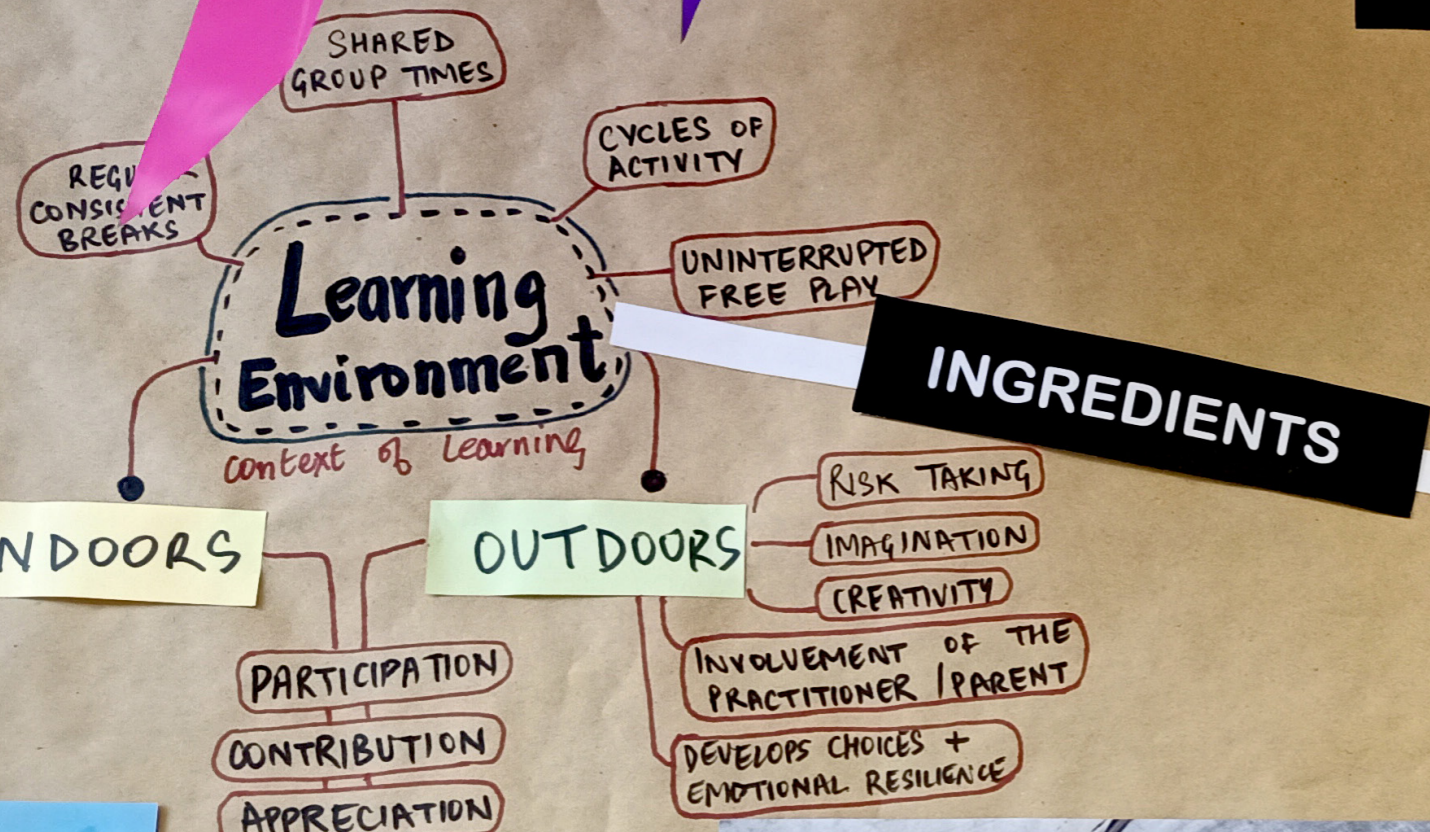 SHARED
GROUP TIMES
CYCLES OF
ACTIVITY
CONSISTENT
BREAKS
UNINTERRUPTED
FREE PLAY
Learning
Environment
context of Learning
INGREDIENTS
NDOORS
OUTDOORS
RISK TAKING
IMAGINATION
CREATIVITY
INVOLVEMENT OF THE
PRACTITIONER / PARENT
DEVELOPS CHOICES +
EMOTIONAL RESILIENCE
PARTICIPATION
CONTRIBUTION
APPRECIATION